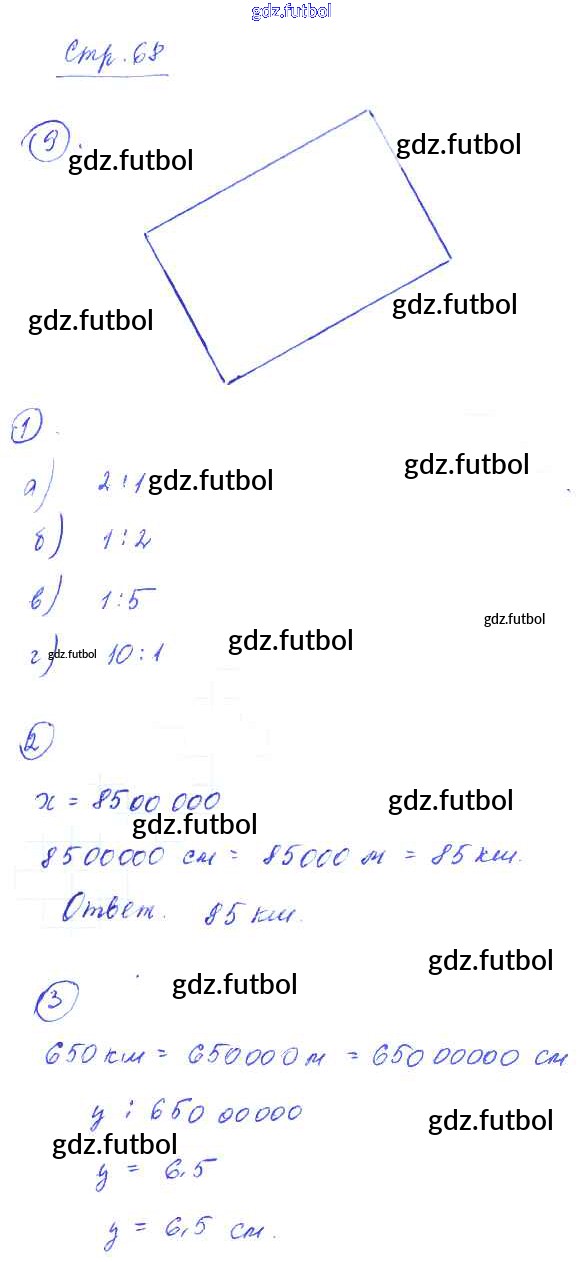 gdz.futbol
Стр. 68
9.
gdz.futbol
gdz.futbol
gdz.futbol
gdz.futbol
1.
gdz.futbol
а) 2 : 1
gdz.futbol
б) 1 : 2
в) 1 : 5
gdz.futbol
gdz.futbol
г) 10 : 1
gdz.futbol
2
x = 8500 000
gdz.futbol
gdz.futbol
8500000 см = 85000 м = 85 км.
Ответ. 85 км.
gdz.futbol
3
gdz.futbol
650 км = 650000 м = 650 00000 см
y : 650 00000
gdz.futbol
gdz.futbol
y = 6,5
y = 6,5 см.